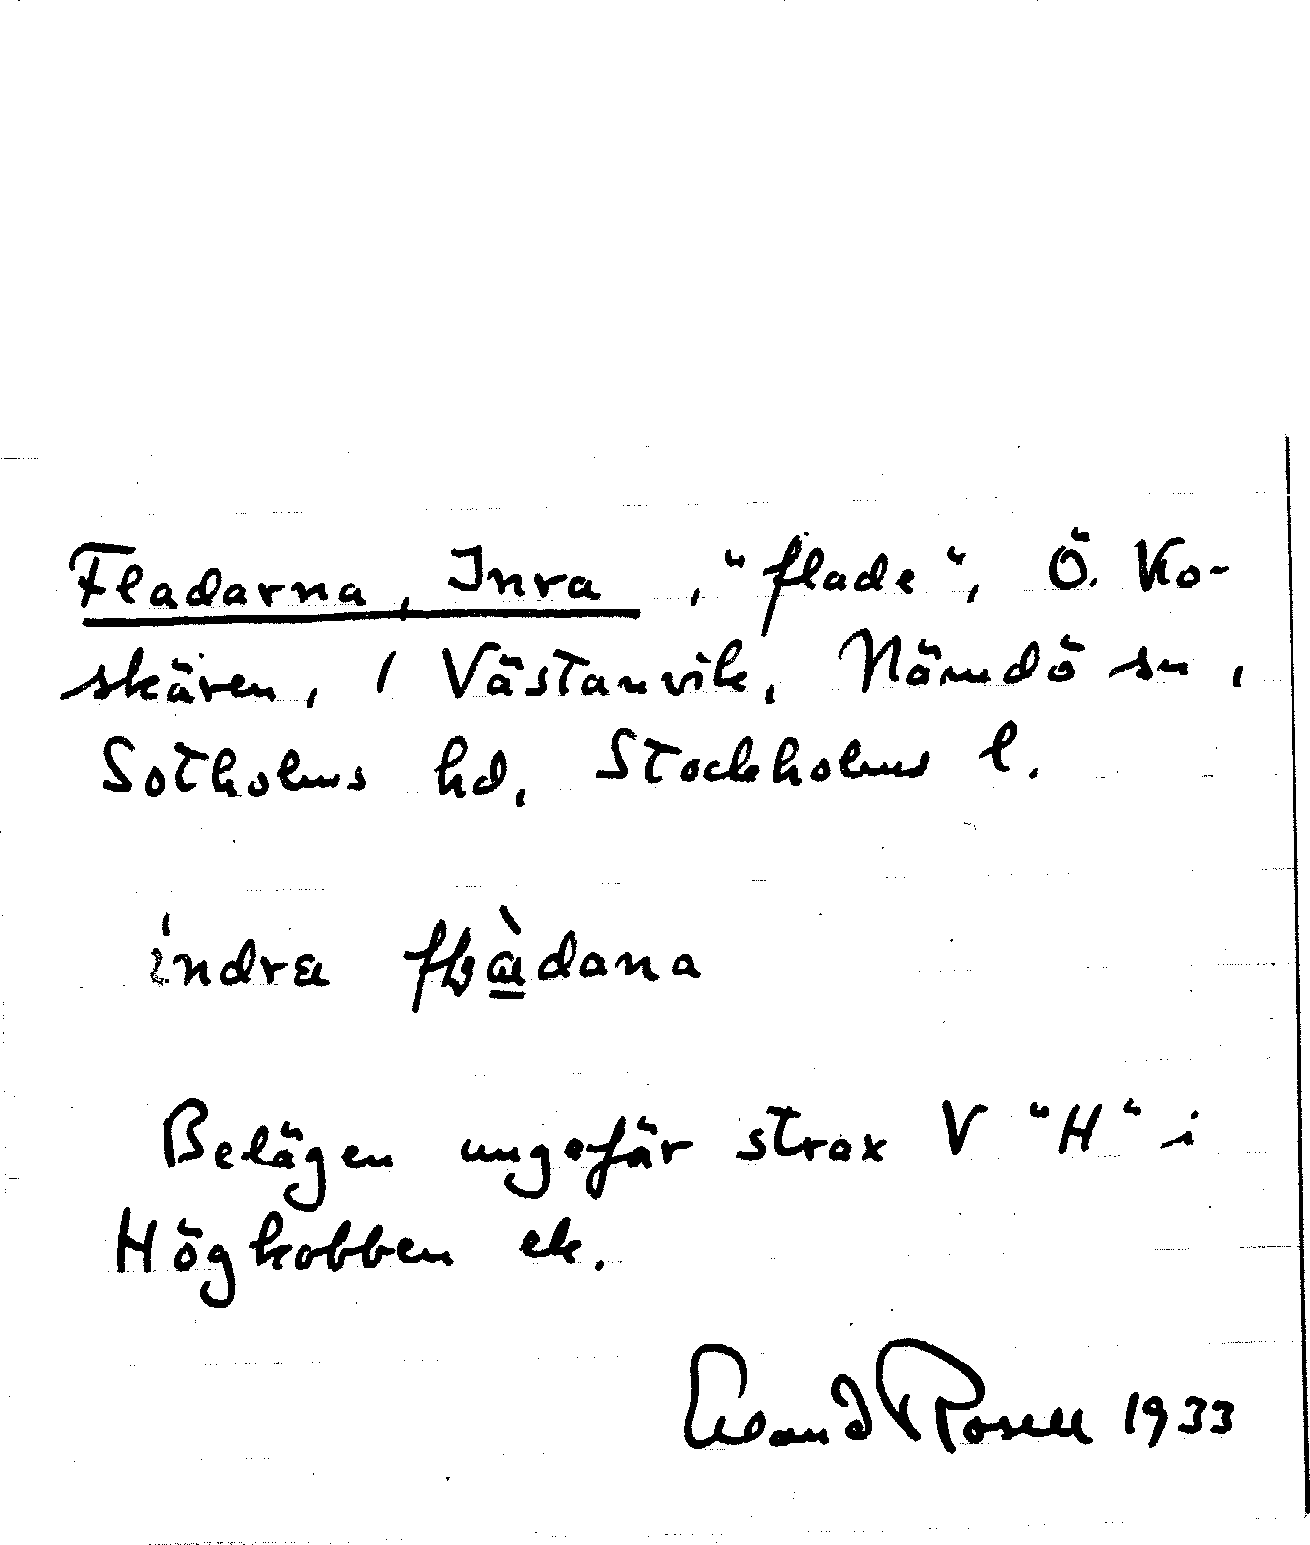 Fladarna, Inra, "flade", Ö. Ko-
skären, / Västanvik, Nämdö sn,
Sotholms hd, Stockholms l.
indra
Belägen ungefär strax V "H" i
Högkobben ek.
Rosell 1933